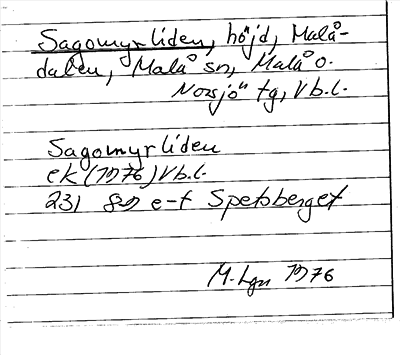 Sagomyrliden, höjd, Malå-
dalen, Malå sn, Malå o.
Norsjö tg, Vb.l.
Sagomyrliden
ek (1976) Vb.l.
231 so e-t Spetsberget
M. Lgn 1976